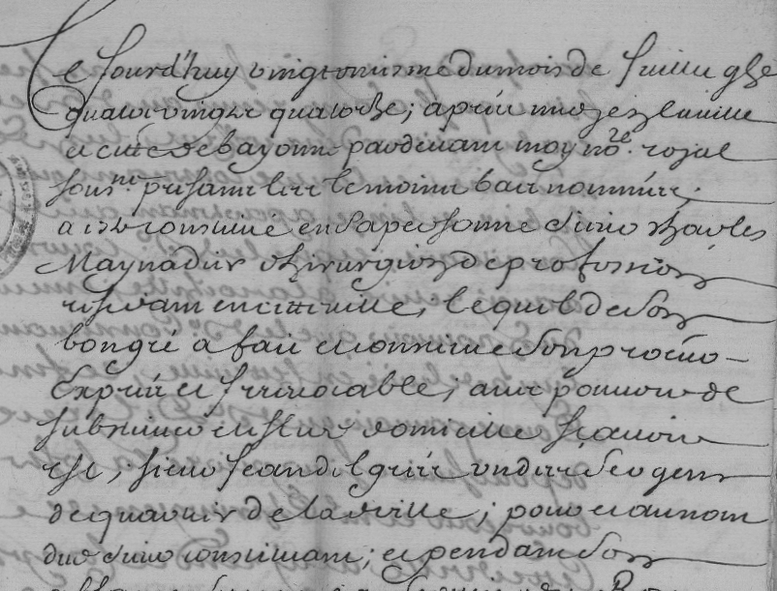 Ce Jourd'huy vingtroisiesme du mois de Juillet gbc
quatre vingtz quatorze; apres midy en la ville
et citté de bayonne pardevant moy no.re royal
sous.né presans les temoins bas nommés;
a esté constitué en Sa personne Sieur Charles
Maynadier Chirurgien de profession
residant en cette ville, lequel de Son
bon gré a fait et constitue Son procur
Exprés et Irrevocable; avec pouvoir de
substituer et eslire domicille sçavoir
est, sieur Jean
de quartier de la ville; pour et au nom
dud sieur constituant; et pendant Son